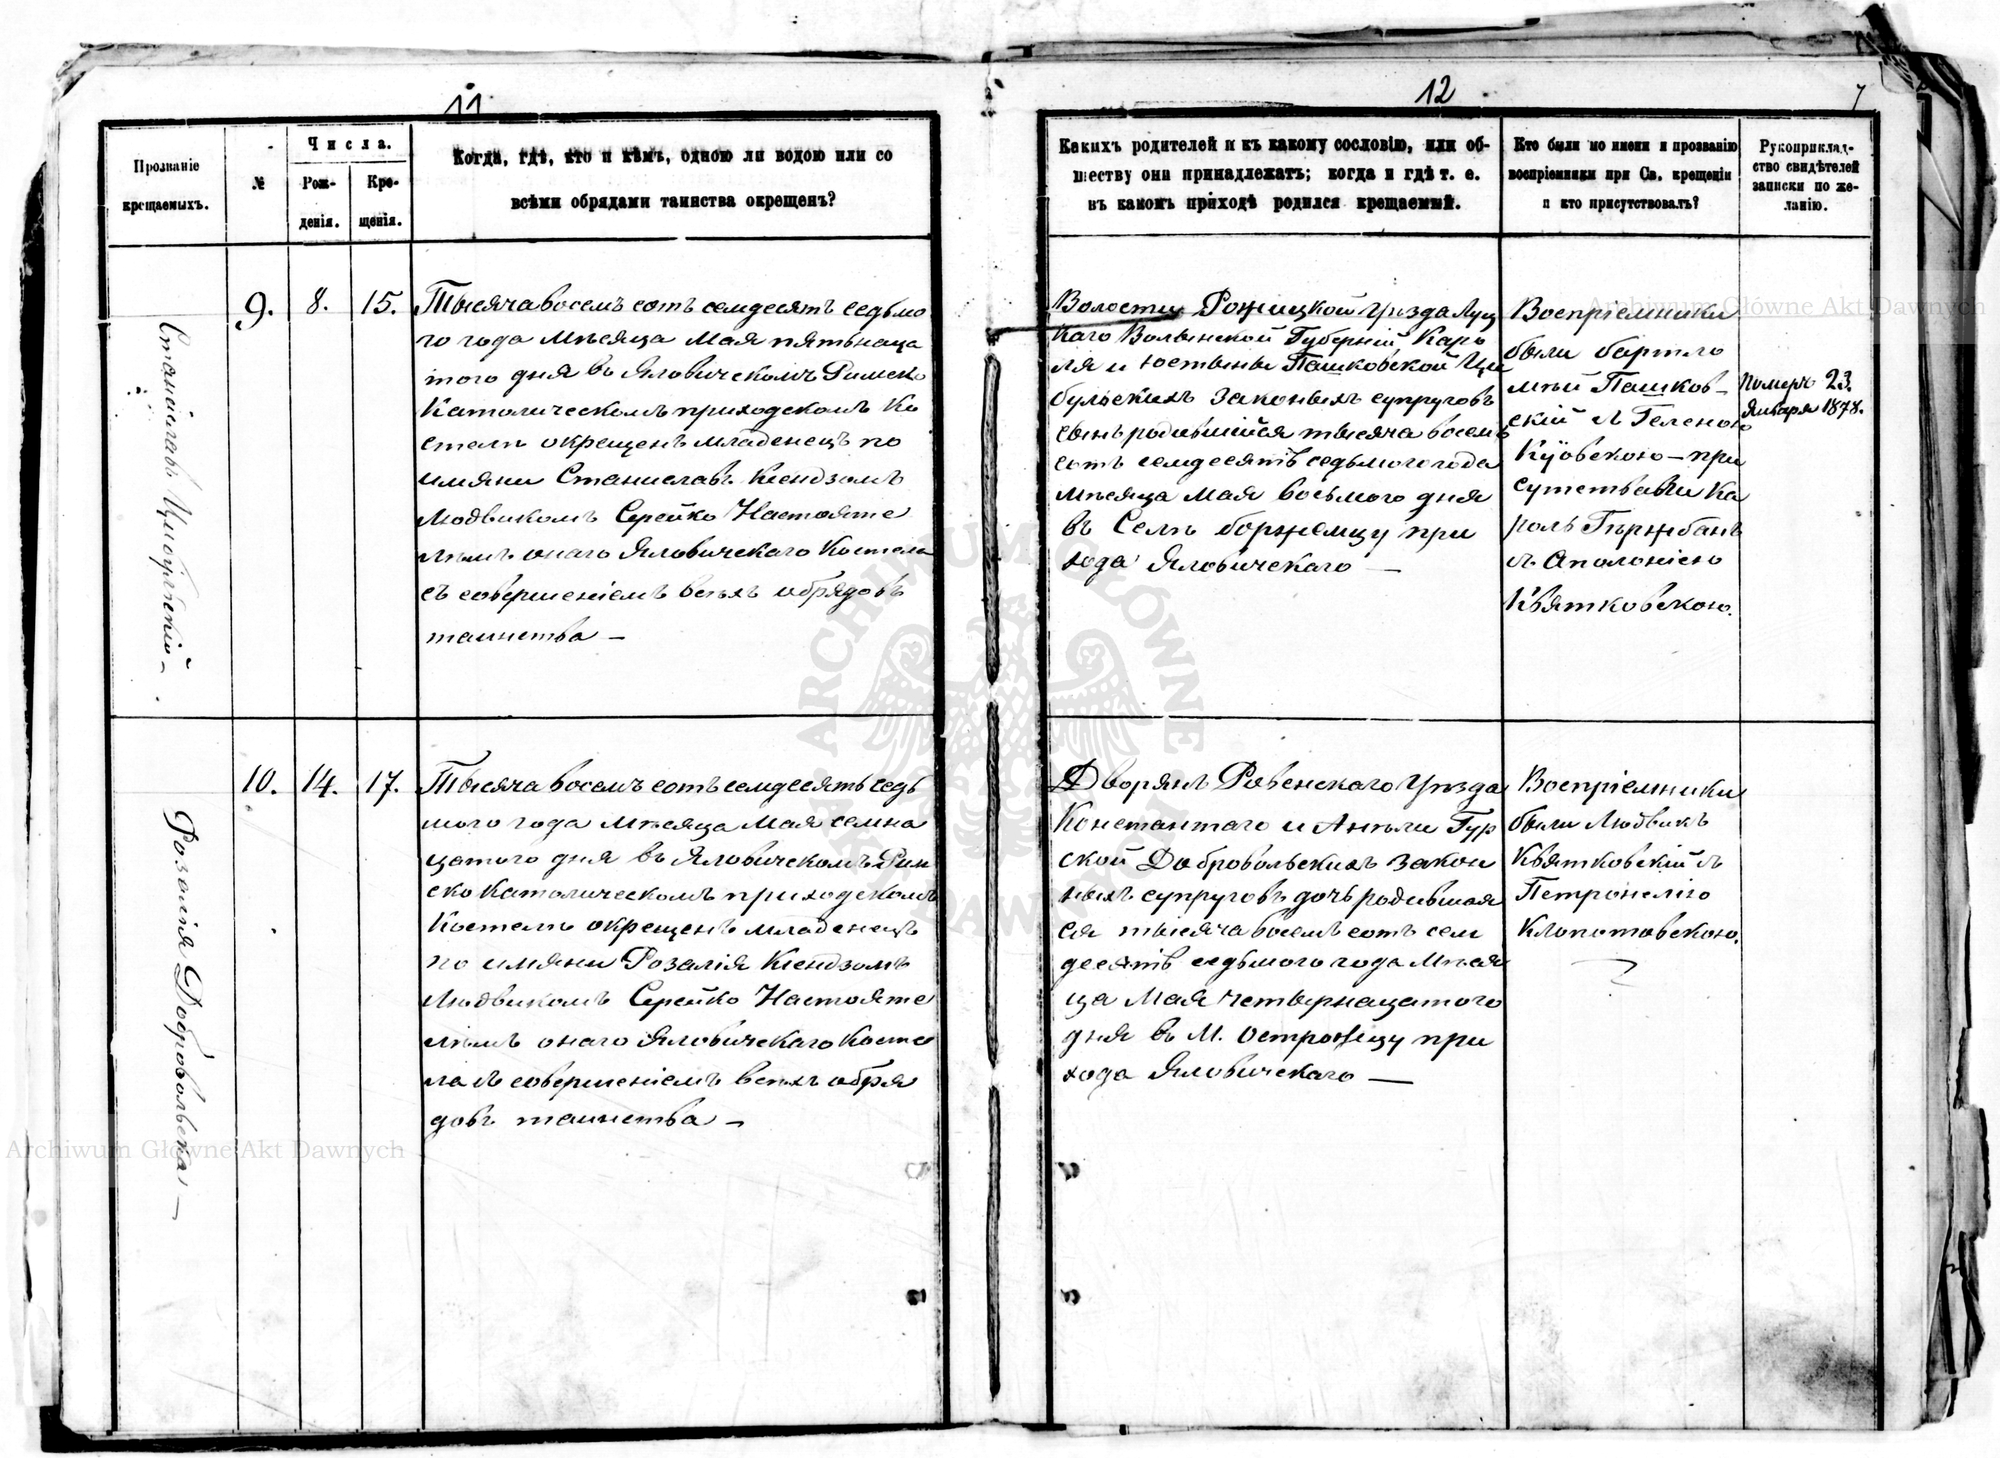 11
Прозваніе
крещаемыхъ.
№
Числа.
Рож-
денія.
Кре-
щенія.
Когда, гдѣ, кто и кѣмъ, одною ли водою или со
всѣми обрядами таинства окрещенъ?
Станиславъ Цибульскій —
9.
8.
15.
Тысяча восемъ сотъ семдесятъ седьмо
го года мѣсяца Мая пятьнаца
того дня въ Яловическомъ Римско
Католическомъ приходскомъ Ко
стелѣ окрещенъ младенецъ по
имяни Станиславъ Ксендзомъ
Людвикомъ Серейко Настояте
лемъ онаго Яловичскаго Костела
съ совершеніемъ всѣхъ обрядовъ
таинства —
Розалія Добровольска —
10.
14.
17.
Тысяча восемъ сотъ семдесятъ седь
мого года мѣсяца Мая семна
цатого дня въ Яловическомъ Рим
ско Католическомъ приходскомъ
Костелѣ окрещенъ младенецъ
по имяни Розалія Ксендзомъ
Людвикомъ Серейко Настояте
лемъ онаго Яловичскаго Косте
ла съ совершеніемъ всѣхъ обря
довъ таинства —
12
7
Какихъ родителей и къ какому сословію, или об-
ществу они принадлежатъ; когда и гдѣ т. е.
въ какомъ приходѣ родился крещаемый.
Кто были по имени и прозванію
воспріемники при Св. крещеніи
и кто присутствовалъ?
Рукоприклад-
ство свидѣтелей
записки по же-
ланію.
Волости Рожицкой Уѣзда Луц
каго Волынской Губерніи Каро
ля и Юстыны Пашковской Ци
бульскихъ законыхъ супруговъ
сынъ родившійся тысяча восемъ
сотъ семдесятъ седьмого года
мѣсяца Мая восьмого дня
въ Селѣ боржемцу при
хода Яловичскаго —
Воспріемники
были бартло
мѣй Пашков-
скій съ Геленою
Куовскою — при
сутствали Ка
роль Гържбанъ
съ Аполоніею
Квятковскою.
Померъ 23.
Января 1878.
Дворянъ Ровенского Уѣзда
Константаго и Анѣли Гур
ской Добровольскихъ закон
ныхъ супруговъ дочь родившая
ся тысяча восемъ сотъ сем
десятъ седьмого года мѣся
ца Мая четырнацатого
дня въ М. Острожцу при
хода Яловичскаго —
Воспріемники
были Людвикъ
Квятковскій съ
Петронелію
Клопотовскою.
Archiwum Główne Akt Dawnych
Archiwum Główne Akt Dawnych
ARCHIWUM GŁÓWNE AKT DAWNYCH